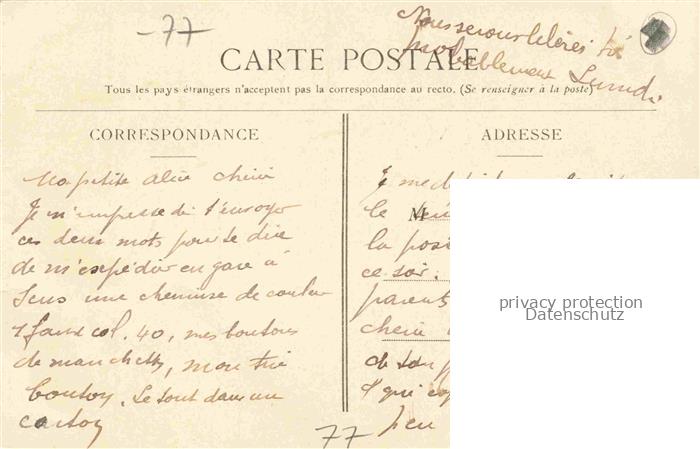 -77
Nous serons libérés
probablement Lundi
CARTE POSTALE
Tous les pays étrangers n'acceptent pas la correspondance au recto. (Se renseigner à la poste)
CORRESPONDANCE
Ma petite alice cherie
Je m'empresse de t'envoyer
ces deux mots pour te dire
de m'expédier en gare à
Sens une chemise de couleur
1 faux col. 40, mes boutons
de manchette, mon
bouton. Le tout dans un
carton
77
ADRESSE
Je
le M
la
ce soir.
parents
cherie
de ton
qui
peu
privacy protection
Datenschutz